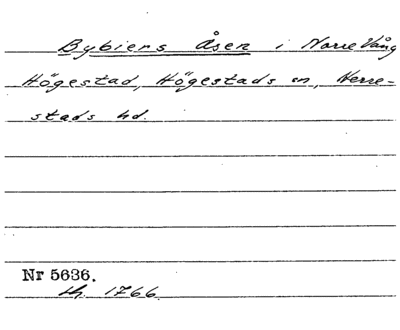 Bybiens Åsen i Norre Vång
Högestad, Högestads sn, Herre-
stads hd.
Nr 5636.
1766